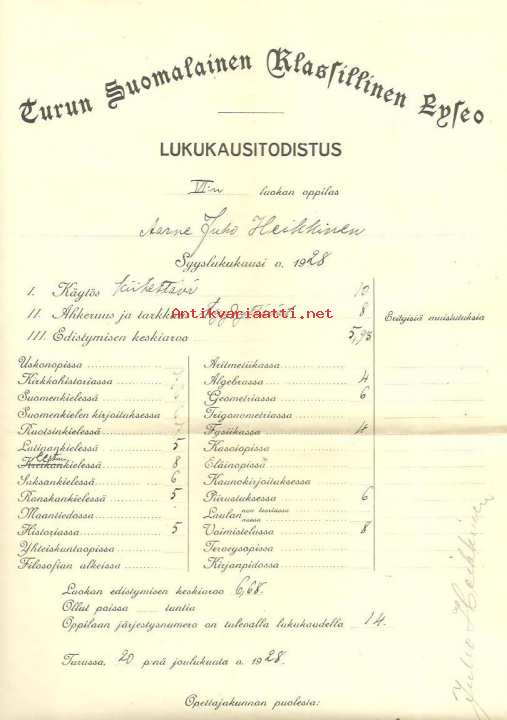 Turun Suomalainen Klassillinen Lyseo
LUKUKAUSITODISTUS
VI:n luokan oppilas
Aarne Juho Heikkinen
Syyslukukausi v. 1928
I. Käytös kiitettävä 10
II. Ahkeruus ja tarkk 8
Antikvariaatti.net
III. Edistymisen keskiarvo 5,93
Erityisiä muistutuksia
Uskonopissa
Kirkkohistoriassa
Suomenkielessä
Suomenkielen kirjoituksessa
Ruotsinkielessä
Latinankielessä 5
Kreikankielessä 8
Saksankielessä 6
Ranskankielessä 5
Maantiedossa
Historiassa 5
Yhteiskuntaopissa
Filosofian alkeissa
Aritmetiikassa
Algebrassa 4
Geometriassa 6
Trigonometriassa
Fysiikassa 4
Kasviopissa
Eläinopissa
Kaunokirjoituksessa
Piirustuksessa 6
Laulun
Voimistelussa 8
Terveysopissa
Kirjanpidossa
Luokan edistymisen keskiarvo 6,68.
Ollut poissa tuntia
Oppilaan järjestysnumero on tulevalla lukukaudella 14.
Turussa, 20 p:nä joulukuuta v. 1928.
Opettajakunnan puolesta:
Juho Heikkinen